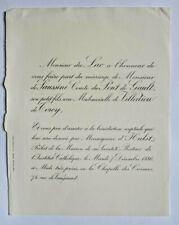 Madame du Luc a l'honneur de
vous faire part du mariage de Monsieur
de Jaussine Comte du Pont de Gault,
son petit-fils, avec Mademoiselle de Villedieu
de Torcy.
Et vous prie d'assister à la Bénédiction nuptiale qui
leur sera donnée par Monseigneur d'Hulst,
Prélat de la Maison de sa Sainteté, Recteur de
l'Institut Catholique, le Mardi 7 Décembre 1886,
à Midi très précis, en la Chapelle des Carmes,
74 rue de Vaugirard.